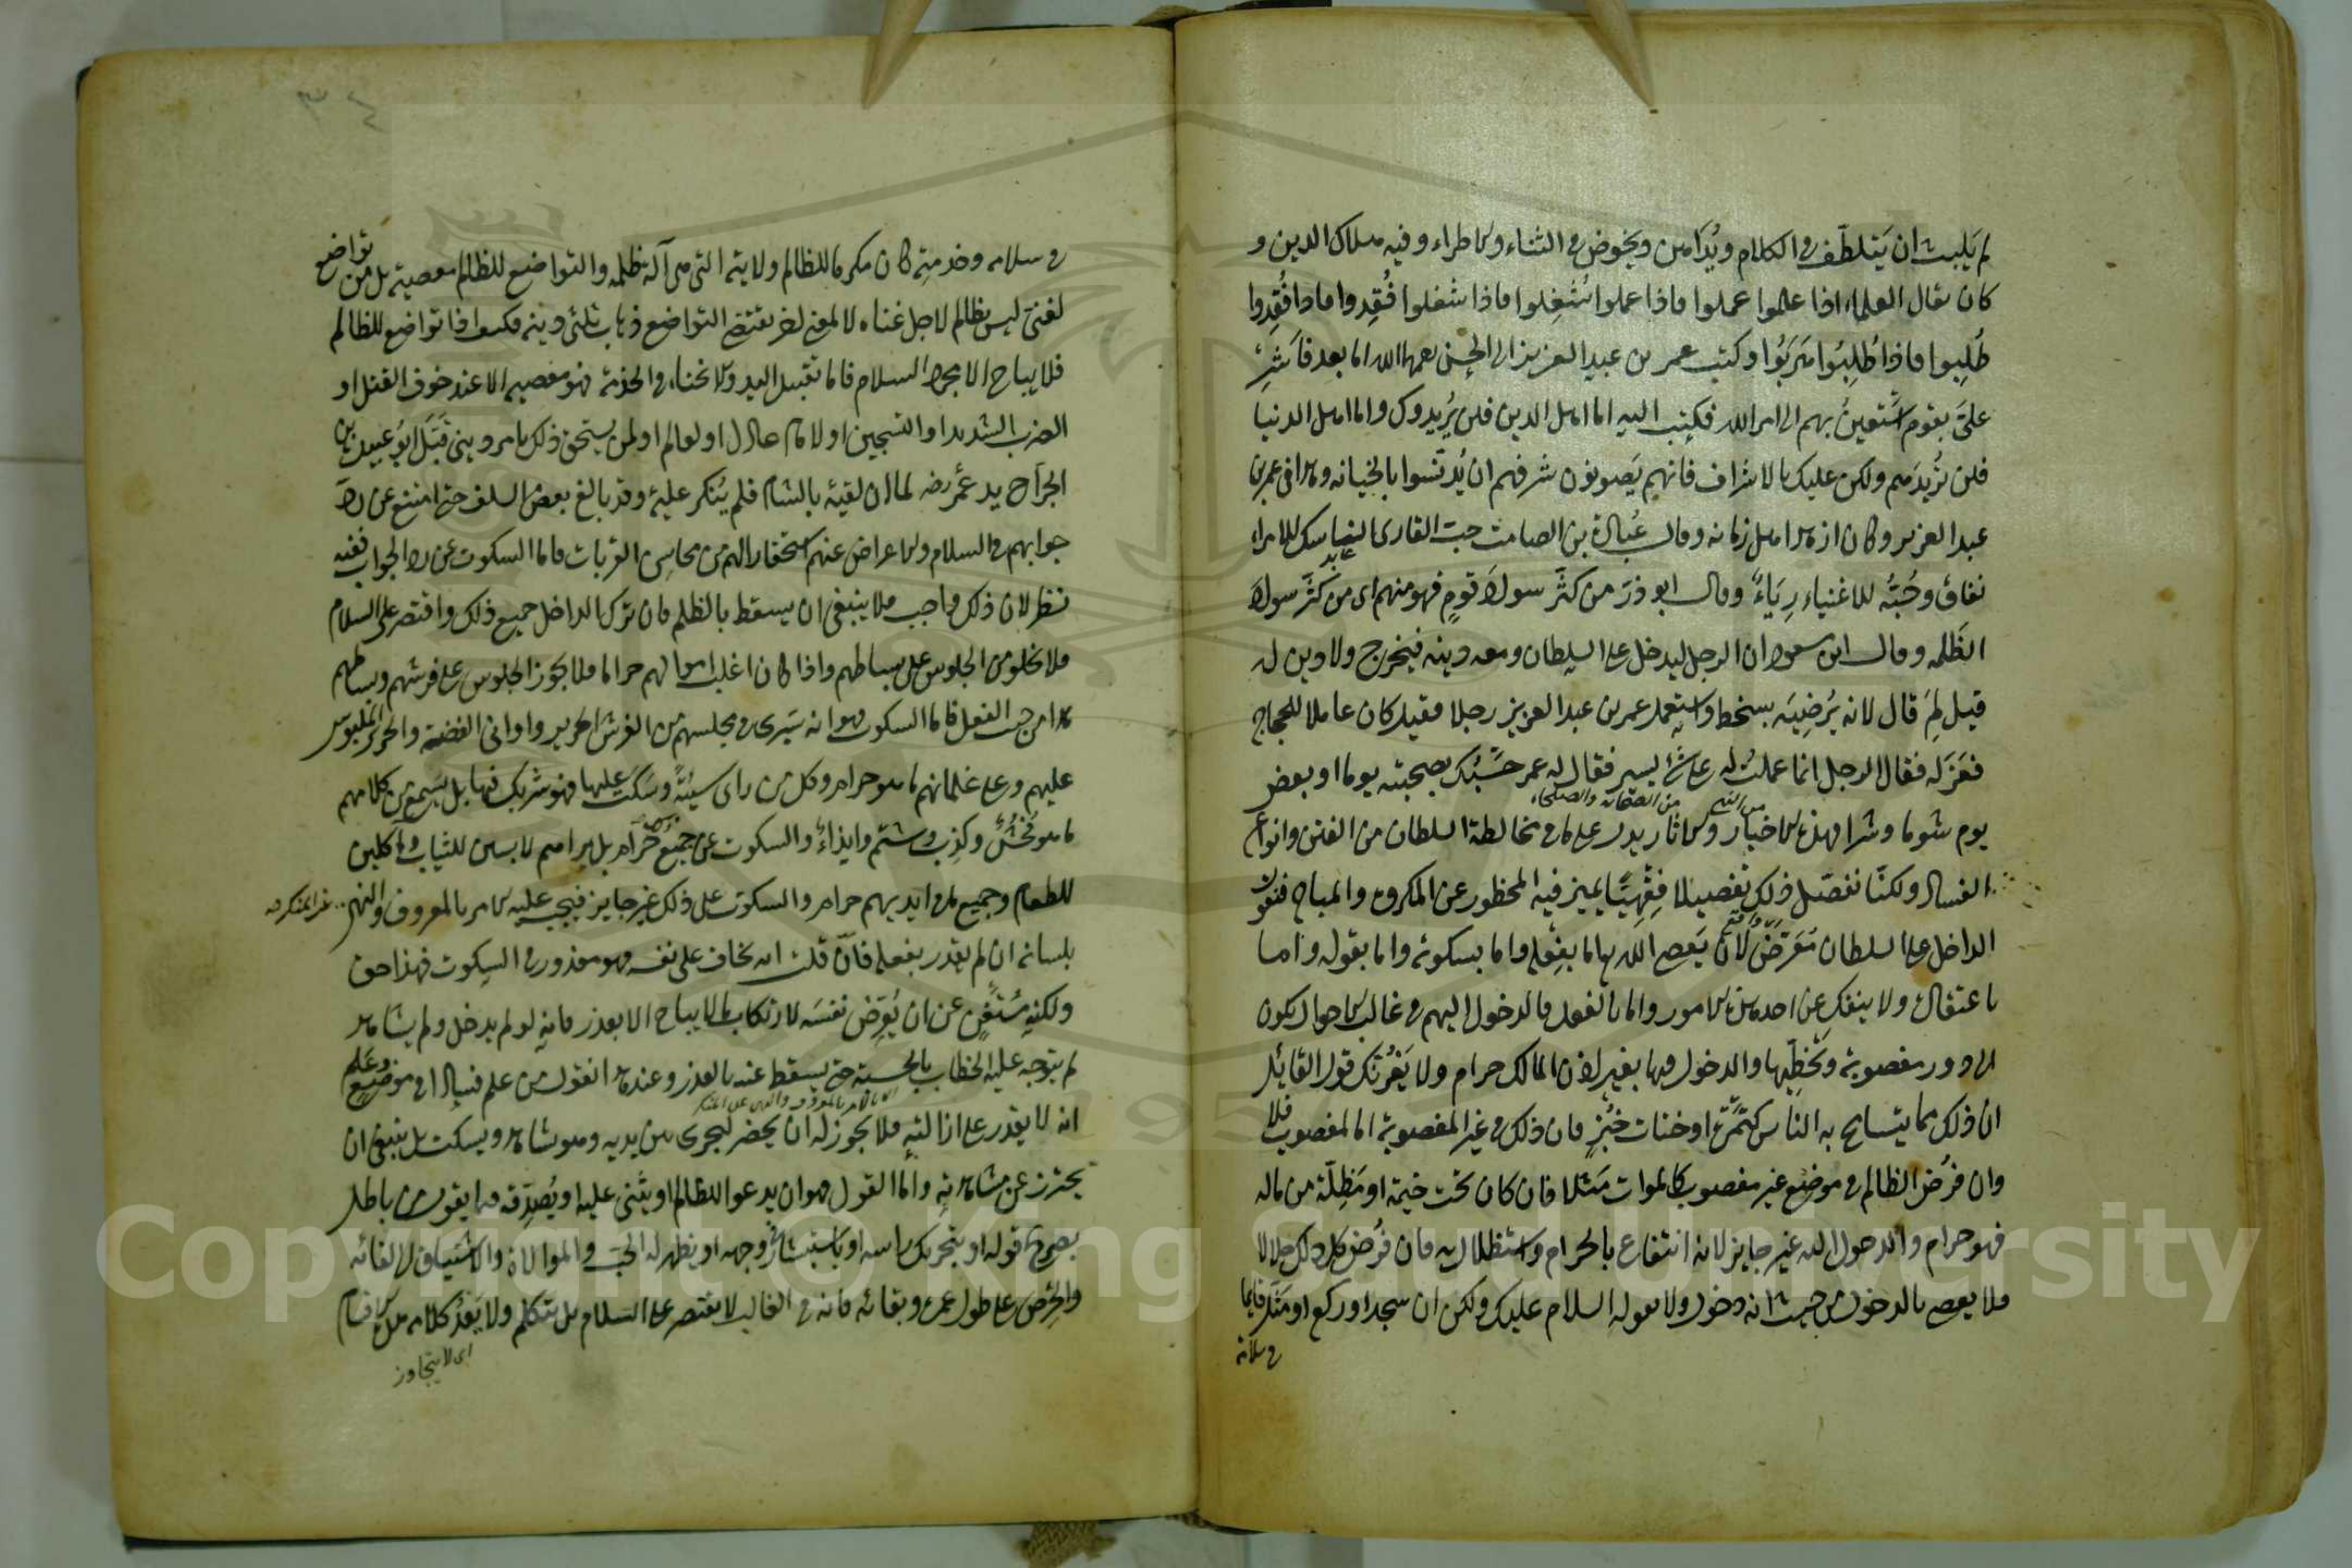 لم يَلبث ان يَتلطّف في الكلام ويُداهن ويخوض في الثناء والاطراء وفيه هلاك الدين و
كان يقال العلماء اذا علموا عملوا فاذا عملوا شُغِلوا فاذا شغلوا فُقِدوا فاذا فُقِدوا
طُلِبوا فاذا طُلِبُوا هَرَبُوا وكتب عمر بن عبد العزيز الى الحسن رحمهما الله اما بعد فَاَشِرْ
علىَّ بقوم اَستعينُ بهم الى امر الله فكتب اليه اما اهل الدين فلن يُريدوك واما اهل الدنيا
فلن تُريدَهم ولكن عليك بالاشراف فانهم يَصونون شرفهم ان يُدنّسوا بالخيانه وهذا في عمر بن
عبد العزيز وكان ازهد اهل زمانه وقال عُبادة بن الصامت حب القارى الناسك للامراء
نفاق وحُبُّه للاغنياء رِيَاءٌ وقال ابو ذرّ من كثَّر سوادَ قومٍ فهو منهم اى من كثَّر سوادَ
الظَلمه وقال ابن مسعود ان الرجل ليدخل على السلطان ومعه دينه فيخرج ولا دين له
قيل لِمَ قال لانه يُرضِيَه بسخط واستعمل عمر بن عبد العزيز رجلا فقيل كان عاملا للحجاج
فعَزَله فقال الرجل انما عملتُ له على شئ يسير فقال له عمر حَسْبُك بصحبته يوما او بعض
من النبي من الصحابة والصلحاء
يوم شوما وشرا فهذه الاخبار والاثار يدل على ما في مخالطة السلطان من الفتن وانواع
الفساد ولكنّا نفصّل ذلك تفصيلا فِقْهيًّا يميز فيه المحظور عن المكروه والمباح فنقول
الداخل على السلطان مُتَعَرِّض لاَن يَعصى الله اما بفِعْله واما بسكوته واما بقوله واما
باعتقاده ولا ينفك عن احد هذه الامور واما بالفعل فالدخول اليهم في غالب الاحوال يكون
الى دور مغصوبة وتَخَطِّيها والدخول فيها بغير اذن المالك حرام ولا يَغُرَّنك قول القائل
ان ذلك مما يتسامح به الناس كتَمْرَةٍ او فتات خُبْزٍ فان ذلك في غير المغصوبة اما المغصوب فلا
وان فُرض الظالم في موضع غير مغصوب كالموات مَثَلا فان كان تحت خيمة او مَظِلّة من ماله
فهو حرام والدخول اليه غير جايز لانه انتفاع بالحرام واستظلال به فان فُرض كل ذلك حلالا
فلا يعصى بالدخول من حيث انه دخول ولا بقوله السلام عليك ولكن ان سجد او ركع او مَثَل قايما
في سلامه
في سلامه وخدمتِه كان مكرما للظالم ولايته التي هى آلة ظلمه والتواضع للظالم معصية بل من تواضع
لغنىّ ليس بظالم لاجل غناه لا لمعنى اخر يقتضى التواضع ذهاب ثلثى دينه فكيف اذا تواضع للظالم
فلا يباح الا مجرد السلام فاما تقبيل اليد والانحناء في الخدمة فهو معصية الا عند خوف القتل او
الضرب الشديد او التسجين او لامام عادل او لعالم او لمن يستحق ذلك بامر دينى قَبَّل ابو عبيدة بن
الجرّاح يد عُمر رضه لما ان لقيه بالشام فلم يُنكر عليه وقد بالغ بعض السلف حتى امتنع عن ردّ
جوابهم في السلام والاعراض عنهم استحقارا لهم من محاسِن القربات فاما السكوت عن رد الجواب ففيه
نظر لان ذلك واجب فلا ينبغى ان يسقط بالظلم فان ترك الداخل جميع ذلك واقتصر على السلام
فلا يخلو من الجلوس على بساطهم واذا كان اغلب اموالهم حراما فلا يجوز الجلوس على فرشهم وبساطهم
هذا من حيث الفعل فاما السكوت فهو انه سَيرى في مجلسهم من الفرش الحرير واوانى الفضة والحرير الملبوس
عليهم وعلى غلمانهم ما هو حرام وكل من راى سيئةً وسَكَت عليها فهو شريك فيها بل يسمع من كلامهم
ما هو فُحْشٌ وكذِب وشتم وايذاءٌ والسكوت عن جميعه حرام بل يراهم لابسين للثياب وآكلين
للطعام وجميع ما في ايديهم حرام والسكوت على ذلك غير جايز فيجب عليه الامر بالمعروف والنهى عن المنكر
بلسانه ان لم يقدر بفعله فاِنْ قلت انه يخاف على نفسه وهو معذور في السكوت فهذا حق
ولكنه مُسْتَغْنٍ عن ان يُعرِّض نفسَه لارتكاب ما لا يباح الا بعذر فانه لو لم يدخل ولم يشاهد
لم يتوجه عليه الخطاب بالحسبة حتى يسقط عنه بالعذر وعند هذا نقول من علم فسادا في موضع وعَلِم
الامر بالمعروف والنهى عن المنكر
انه لا يقدر على ازالته فلا يجوز له ان يحضر ليجرى بين يديه وهو يشاهد ويسكت بل ينبغى ان
يحترز عن مشاهدته واَمّا القول فهو ان يدعو للظالم او يثنى عليه او يُصدّقه فيما يقول من باطل
بصريح قوله او بتحريك راسه او باستبشار في وجهه او يظهر له الحب والموالاة والاشتياق الى لقائه
والحِرْص على طول عمره وبقائه فانه في الغالب لا يقتصر على السلام بل يتكلم ولا يَعْدُ كلامه هذه الاقسام
اى لا يتجاوز